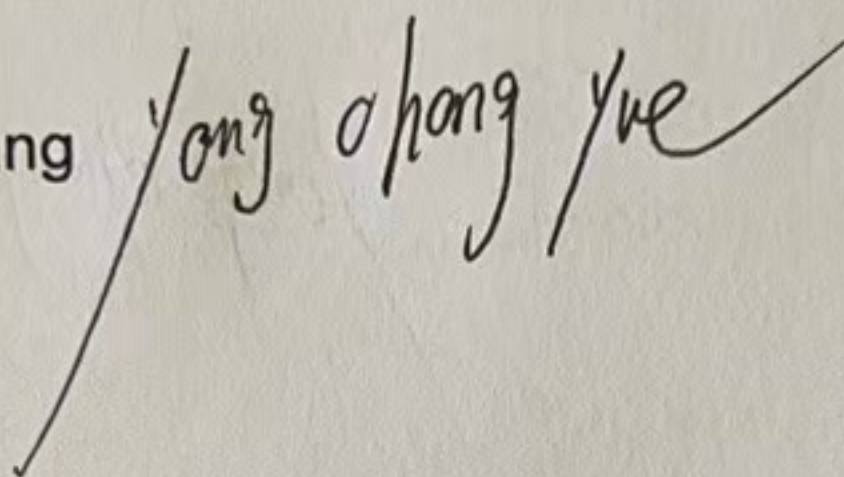 ng Yang Chang Yue